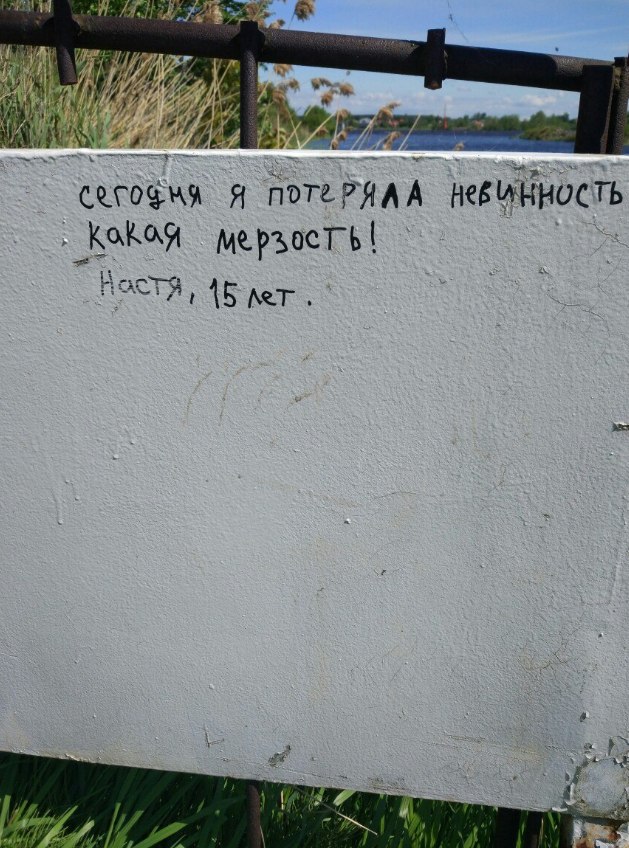 сегодня я потеряла невинность
какая мерзость!
Настя, 15 лет.